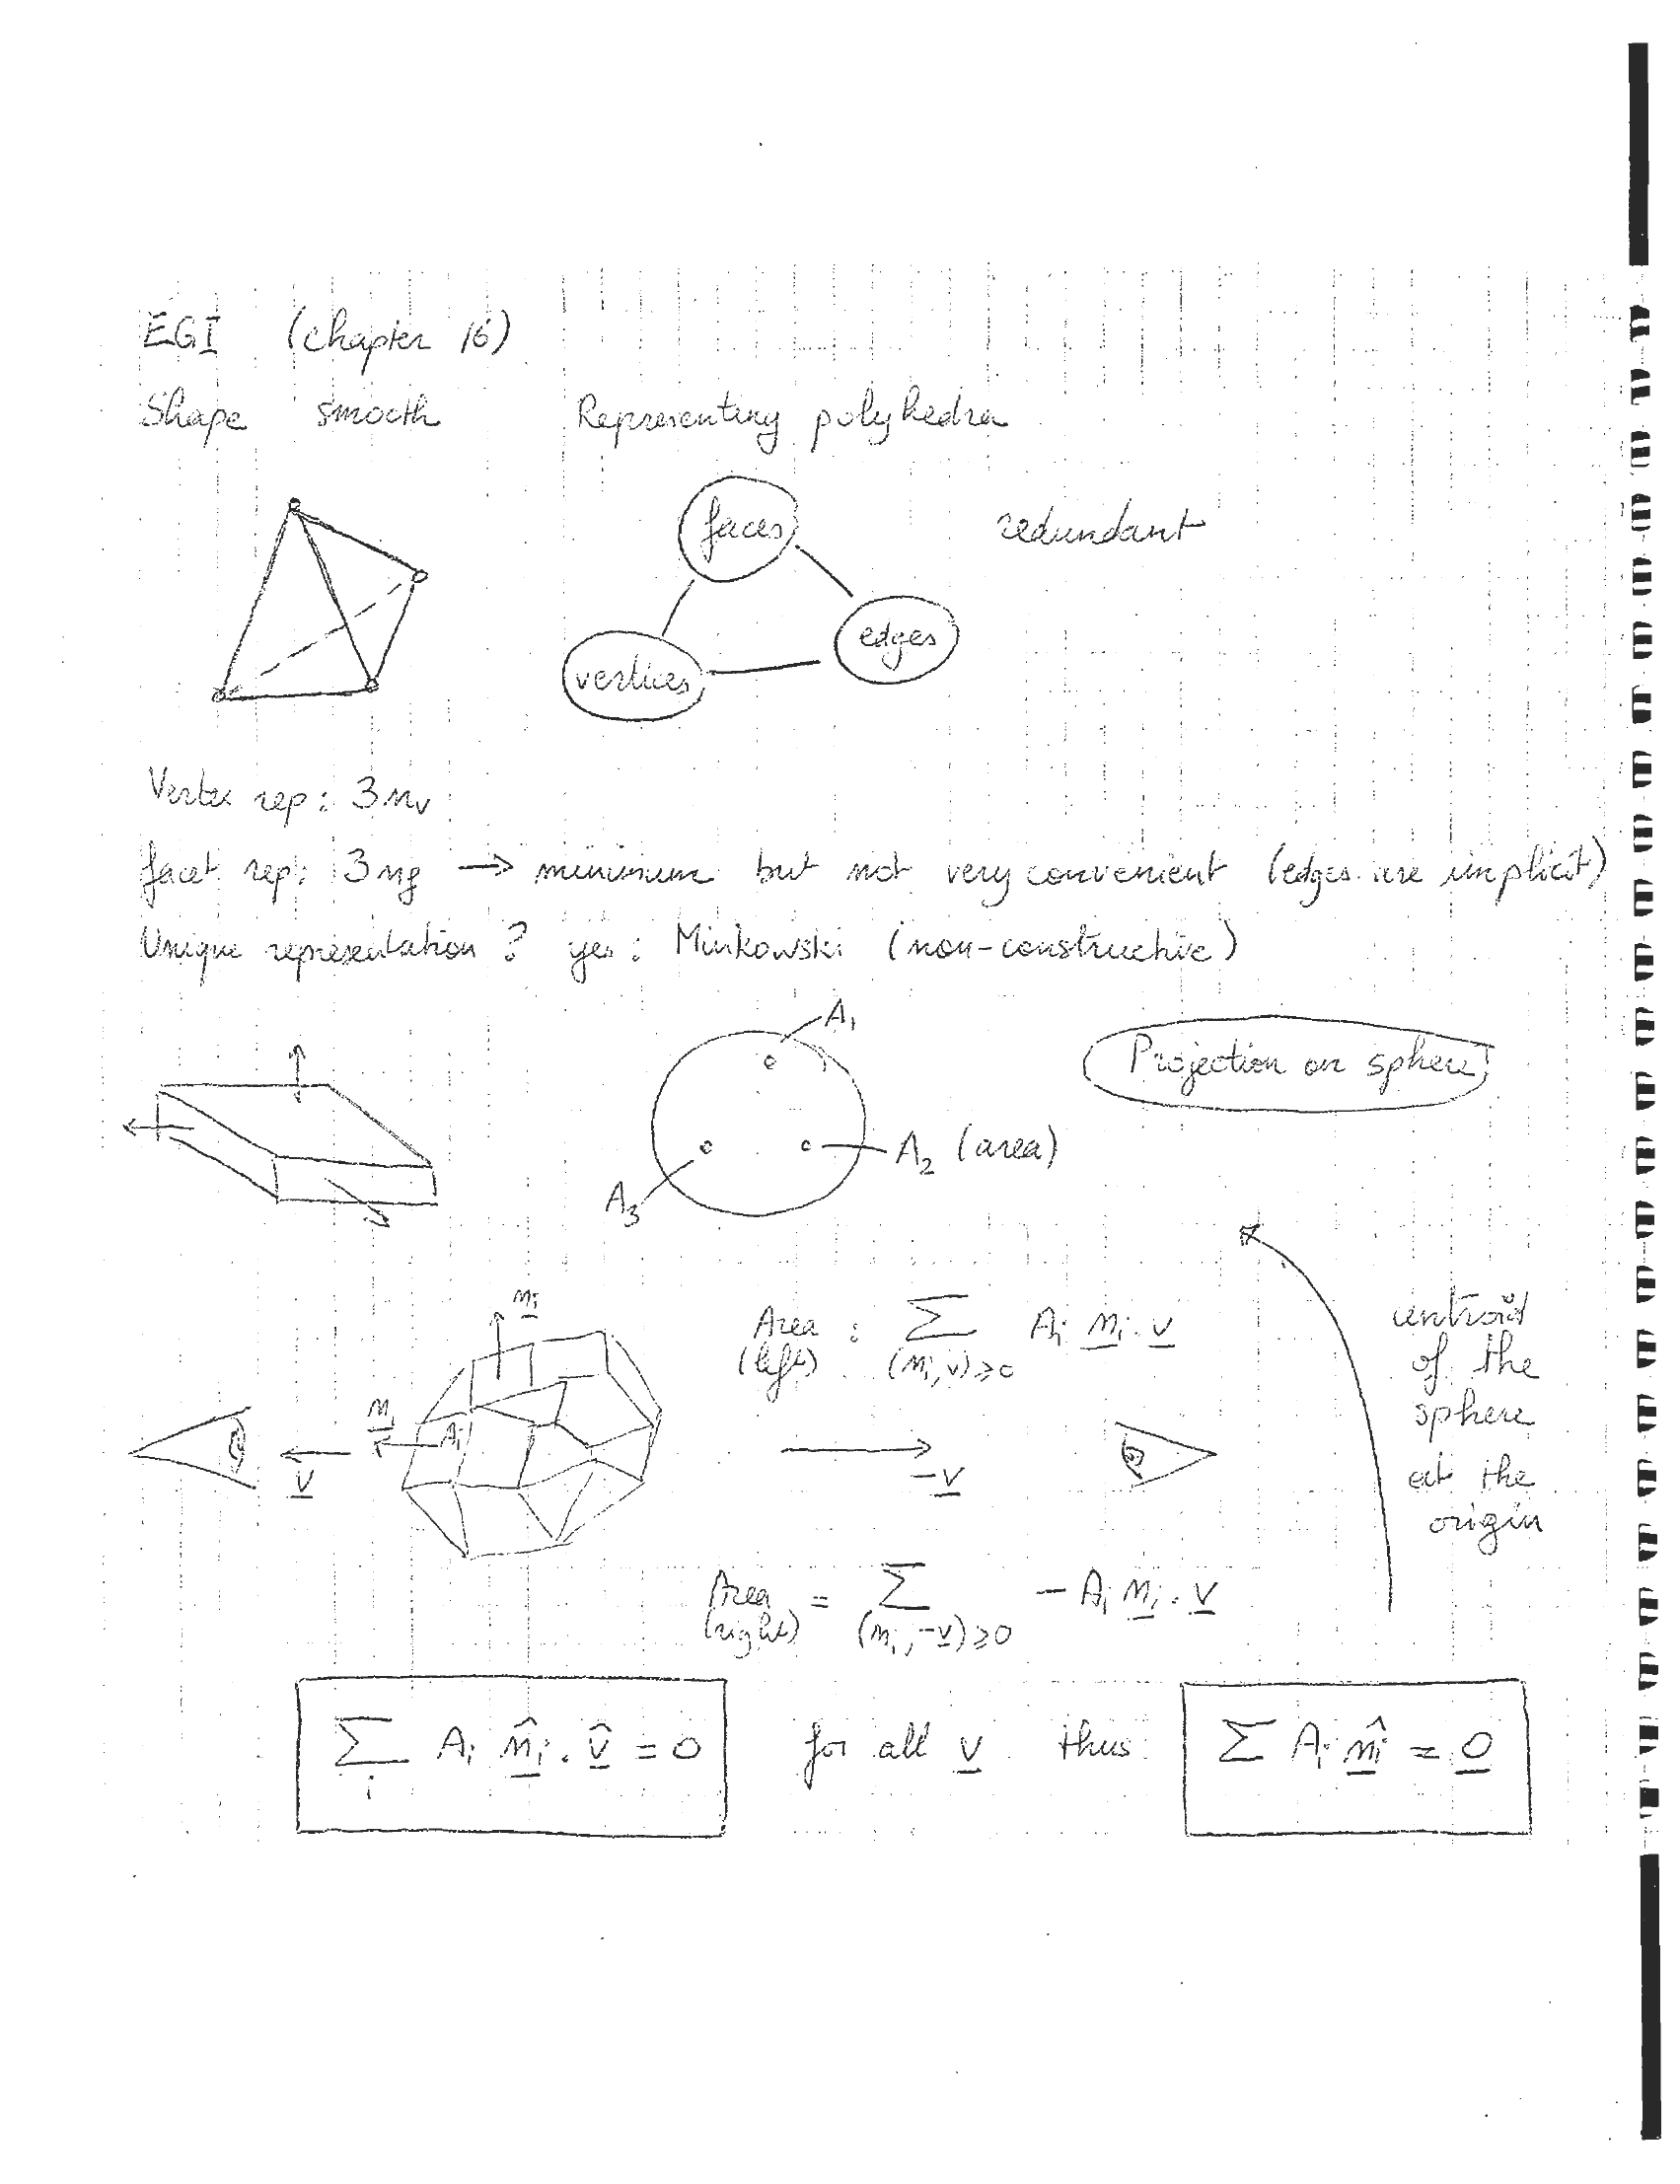 EGI (chapter 16)
Shape smooth Representing polyhedra
faces
redundant
edges
vertices
Vertex rep: 3 n_v
facet rep: 3 n_f → minimum but not very convenient (edges are implicit)
Unique representation? yes: Minkowski (non-constructive)
A₁
Projection on sphere
A₂ (area)
A₃
n_i
Area (left) : Σ_{(n_i, v) ≥ 0} A_i n_i . v
n_i
A_i
v
-v
centroid
of the
sphere
at the
origin
Area (right) = Σ_{(n_i, -v) ≥ 0} - A_i n_i . v
Σ_i A_i n̂_i . v̂ = 0 for all v thus: Σ A_i n̂_i = 0